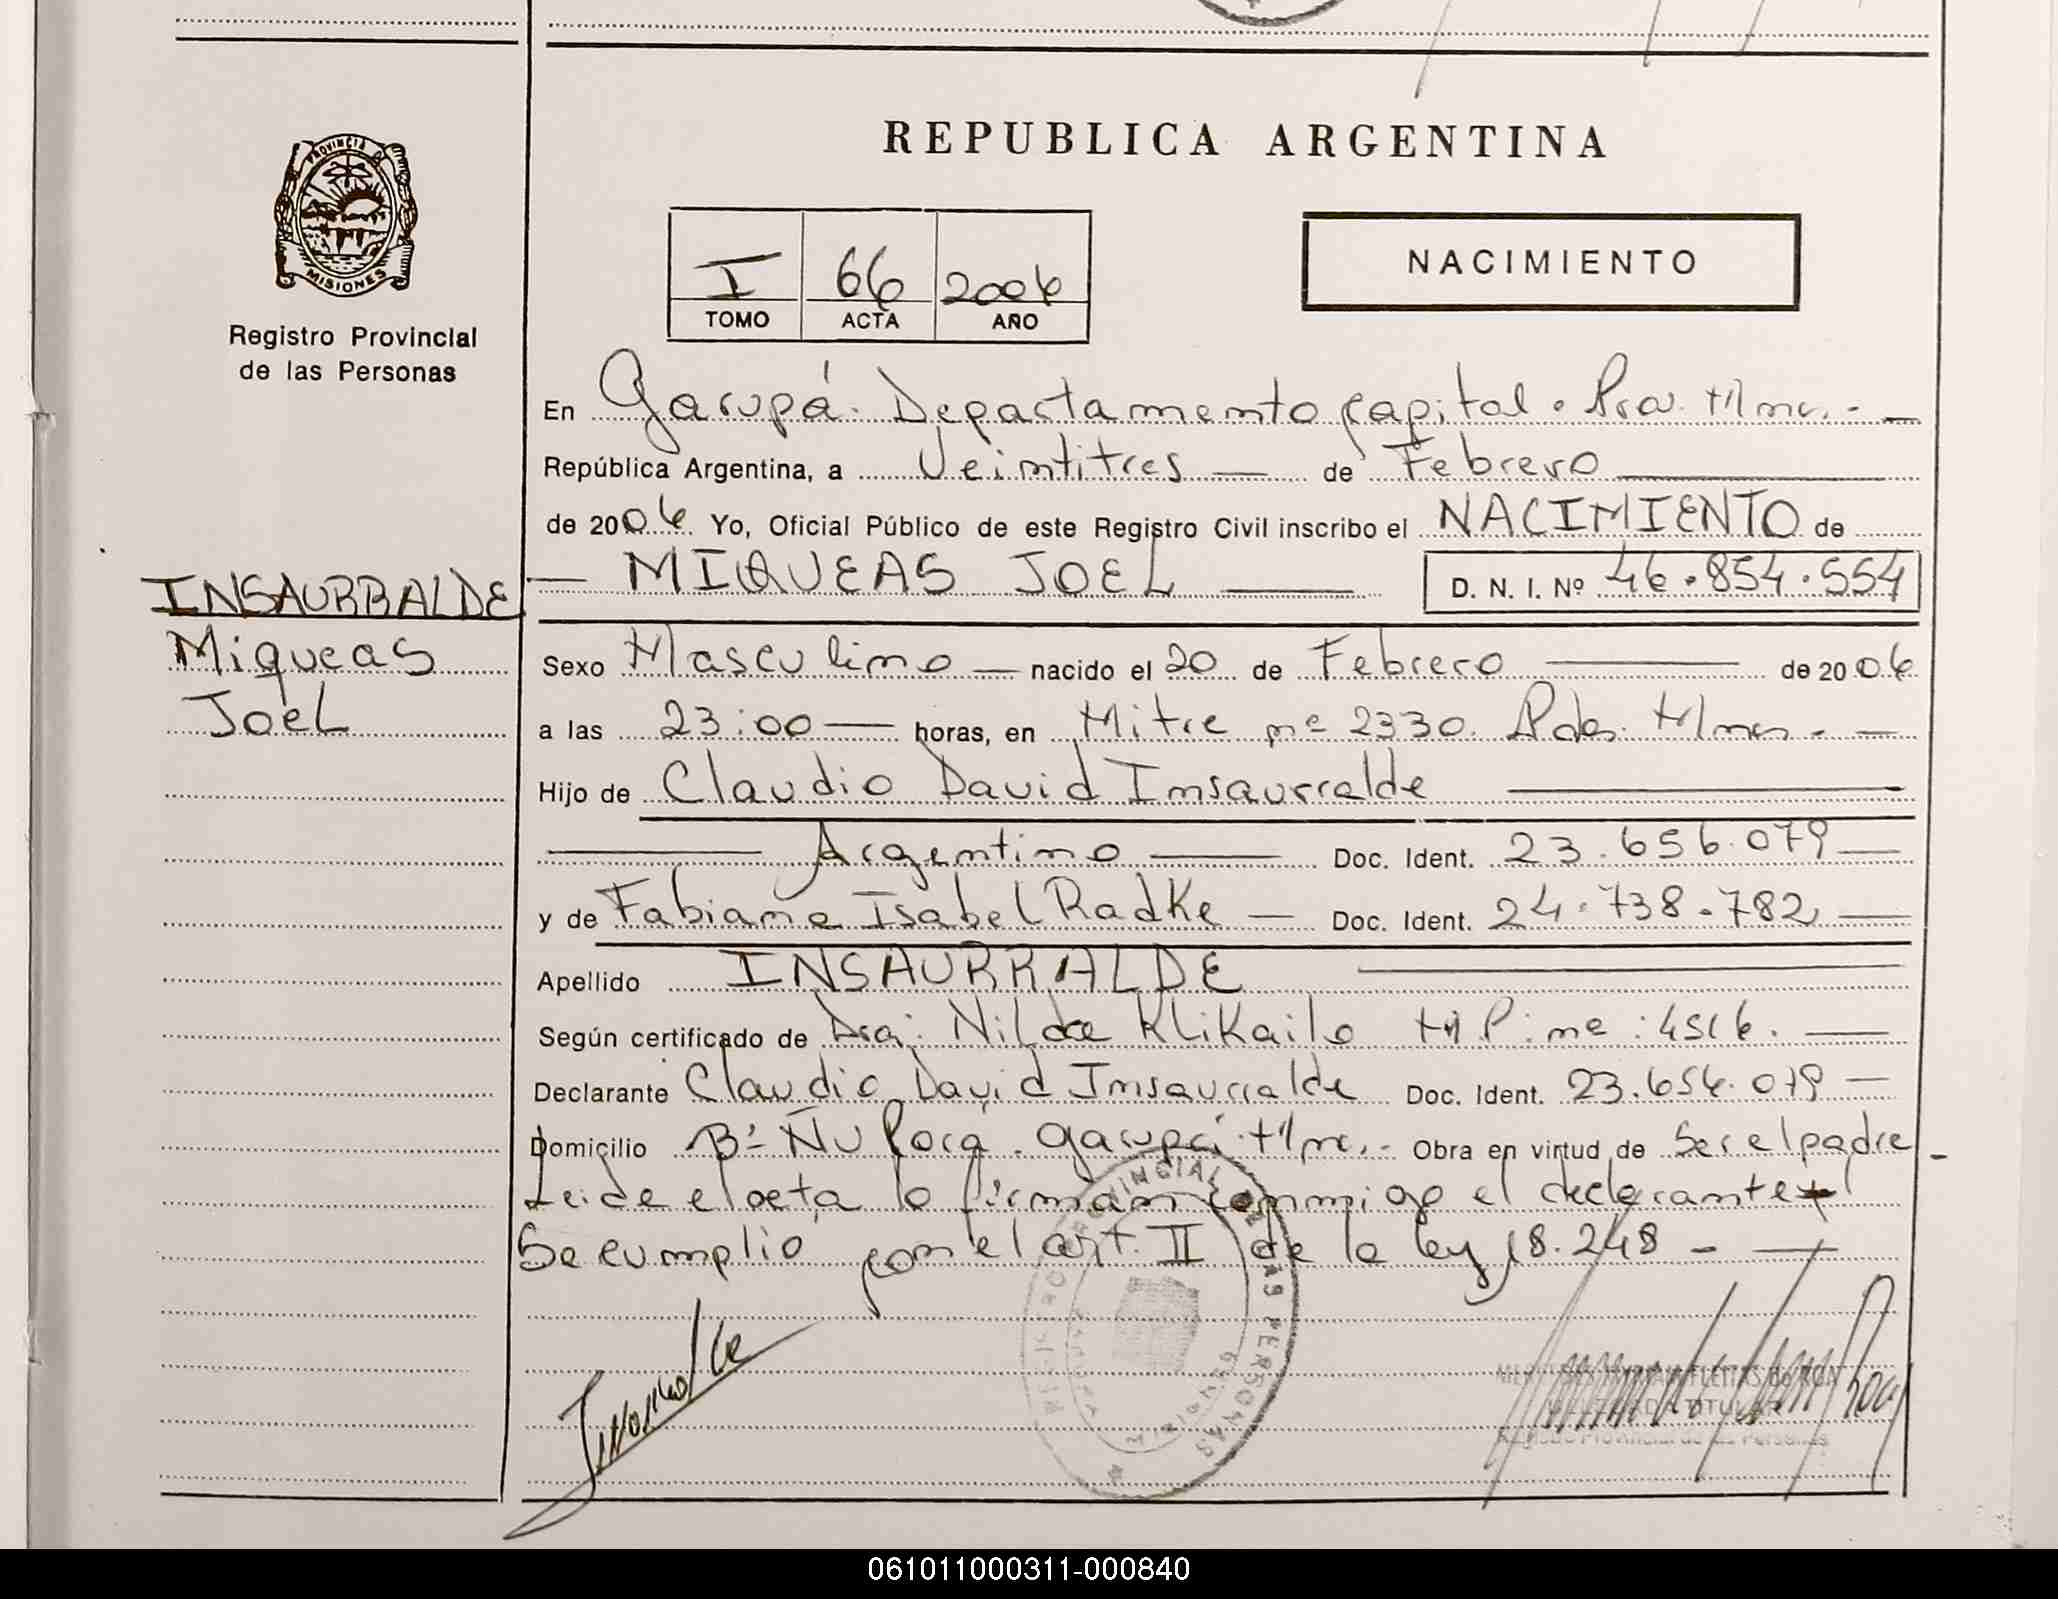 REPUBLICA ARGENTINA
PROVINCIA D
MISIONES
Registro Provincial
de las Personas
I 66 2006
TOMO ACTA AÑO
NACIMIENTO
En Garupá. Departamento capital. Pcia. Mnes.-
República Argentina, a Veintitres de Febrero
de 2006 Yo, Oficial Público de este Registro Civil inscribo el NACIMIENTO de
MIQUEAS JOEL D. N. I. Nº 46.854.554
INSAURRALDE
Miqueas
Joel
Sexo Masculino nacido el 20 de Febrero de 2006
a las 23:00 horas, en Mitre nº 2330. Pdas. Mnes.-
Hijo de Claudio David Insaurralde
Argentino Doc. Ident. 23.656.079
y de Fabiana Isabel Radke Doc. Ident. 24.738.782
Apellido INSAURRALDE
Según certificado de Dra: Nilda Klikailo M.P: nº:
Declarante Claudio David Insaurralde Doc. Ident. 23.656.079
Domicilio Bº Ñu Porá. Garupá. Mnes.- Obra en virtud de Ser el padre
Leida el acta la firman conmigo el declarante
Se cumplio con el art. II de la ley 18.248 -
PROVINCIAL DE LAS PERSONAS
FLEITAS de ROA
TITULAR
Registro Provincial de las Personas
061011000311-000840